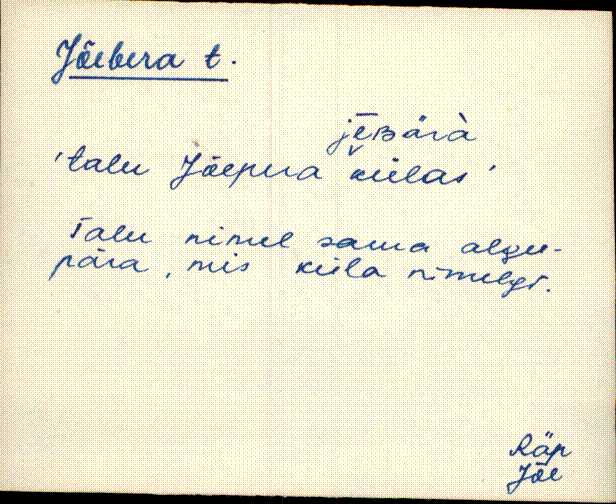 Jõebera t.
jēʙärà
'talu Jõepera külas'
Talu nimel sama algu-
pära, mis küla nimelgi.
Räp
Jõe